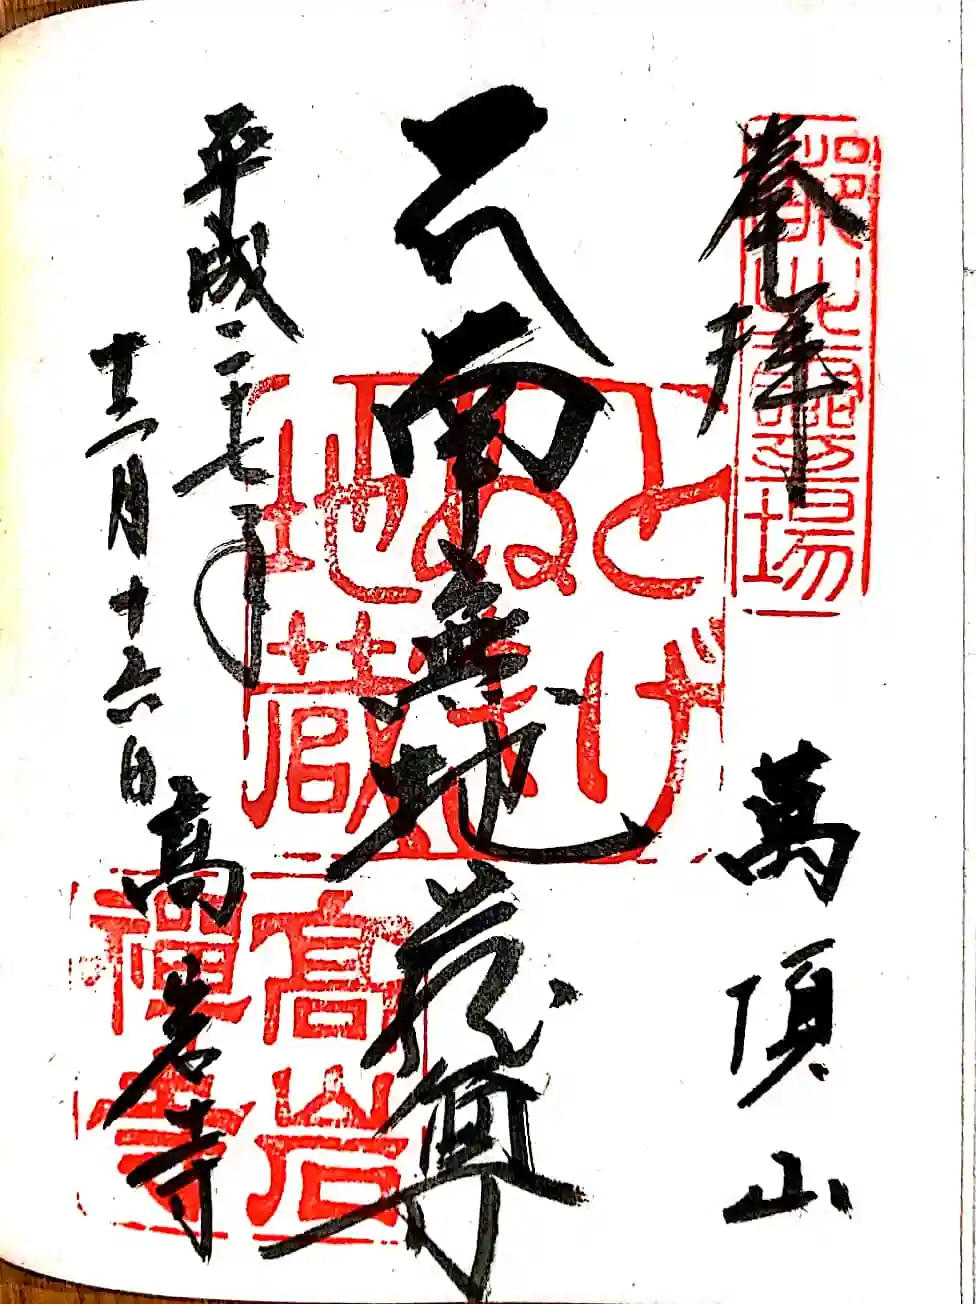 奉拝
萬頂山
霊場
南無地蔵尊
とげ
ぬき
地蔵
平成二十七年
十二月十六日
高岩寺
高岩
禅寺